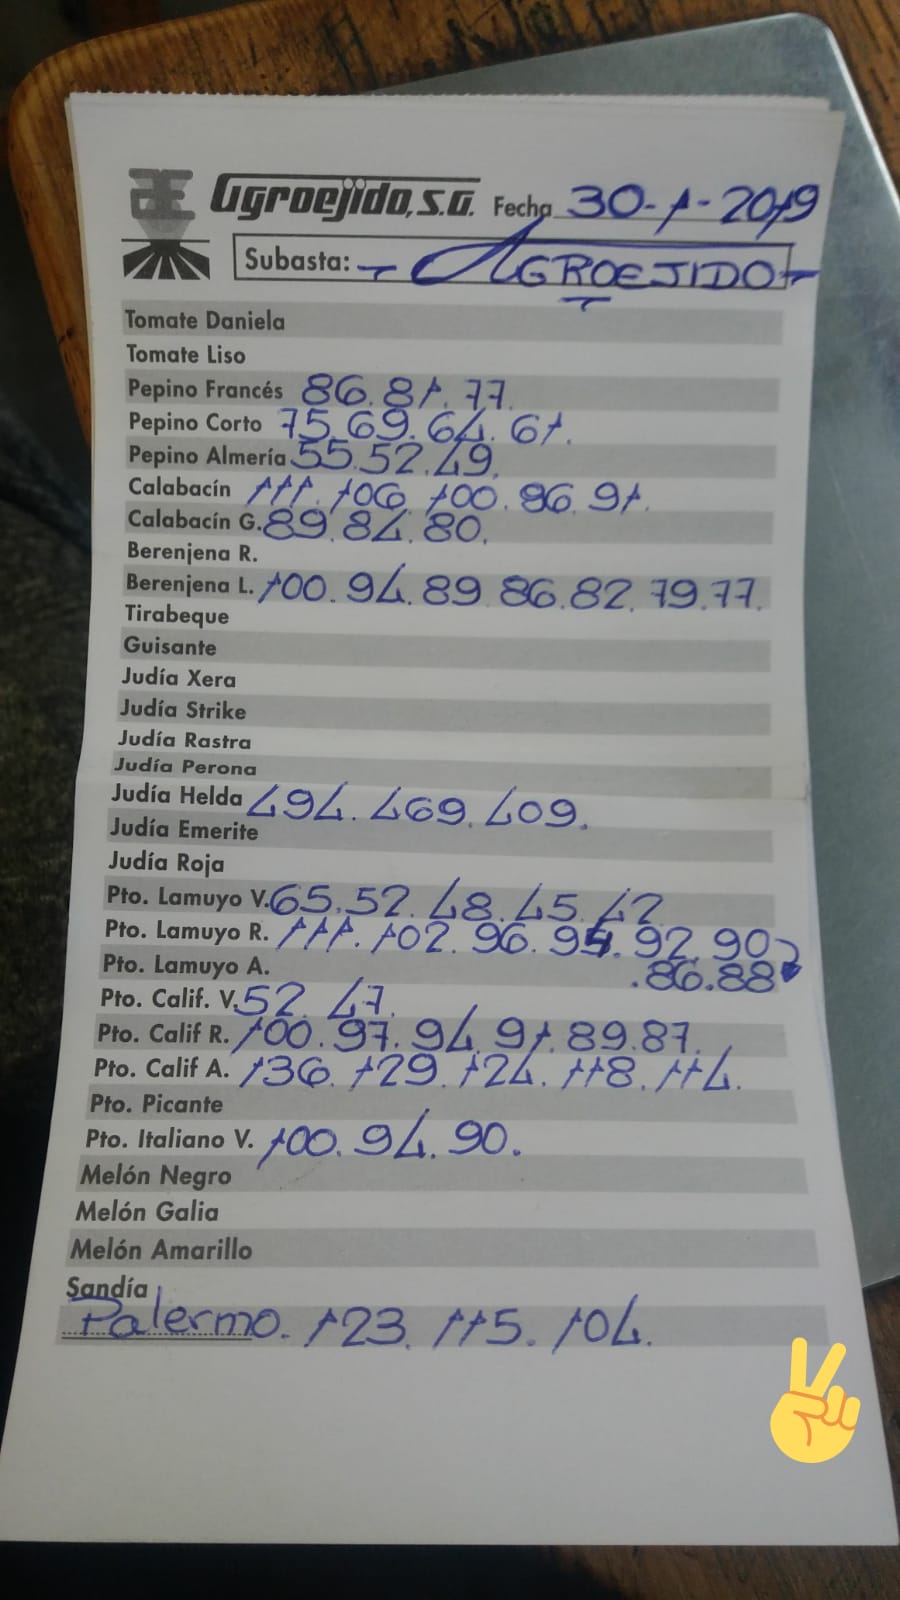 Agroejido, S.A. Fecha 30-1-2019
Subasta: - AGROEJIDO -
Tomate Daniela
Tomate Liso
Pepino Francés 86.81.77.
Pepino Corto 75.69.64.61.
Pepino Almería 55.52.49.
Calabacín 111.106.100.96.91.
Calabacín G. 89.84.80.
Berenjena R.
Berenjena L. 100.94.89.86.82.79.77.
Tirabeque
Guisante
Judía Xera
Judía Strike
Judía Rastra
Judía Perona
Judía Helda 494.469.409.
Judía Emerite
Judía Roja
Pto. Lamuyo V. 65.52.48.45.42
Pto. Lamuyo R. 111.102.96.94.92.90
Pto. Lamuyo A. .86.88
Pto. Calif. V. 52.47.
Pto. Calif R. 100.97.94.91.89.87.
Pto. Calif A. 136.129.124.118.114.
Pto. Picante
Pto. Italiano V. 100.94.90.
Melón Negro
Melón Galia
Melón Amarillo
Sandía
Palermo. 123.115.104.